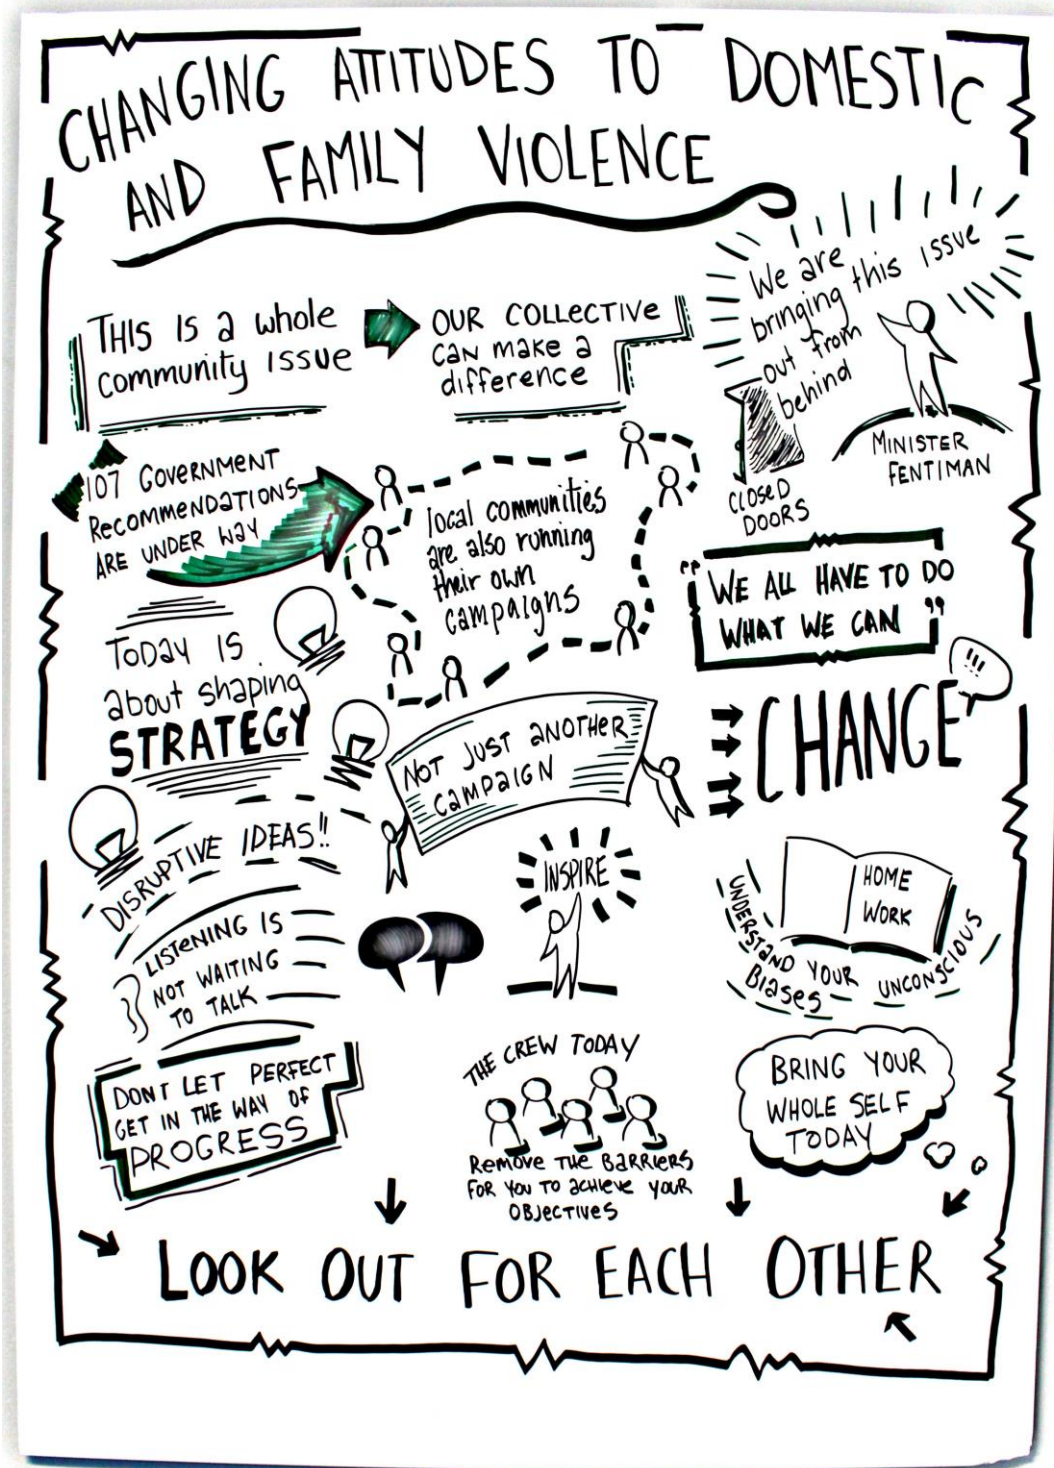 CHANGING ATTITUDES TO DOMESTIC
AND FAMILY VIOLENCE
THIS IS a whole
community ISSUE
OUR COLLECTIVE
CAN make a
difference
We are
bringing this issue
out from
behind
CLOSED
DOORS
MINISTER
FENTIMAN
107 GOVERNMENT
RECOMMENDATIONS
ARE UNDER WAY
local communities
are also running
their own
campaigns
"WE ALL HAVE TO DO
WHAT WE CAN"
TODAY IS
about shaping
STRATEGY
NOT JUST ANOTHER
CAMPAIGN
CHANGE
!!!
DISRUPTIVE IDEAS!!
INSPIRE
HOME
WORK
UNDERSTAND YOUR UNCONSCIOUS
BIASES
LISTENING IS
NOT WAITING
TO TALK
DONT LET PERFECT
GET IN THE WAY OF
PROGRESS
THE CREW TODAY
REMOVE THE BARRIERS
FOR YOU TO ACHIEVE YOUR
OBJECTIVES
BRING YOUR
WHOLE SELF
TODAY
LOOK OUT FOR EACH OTHER